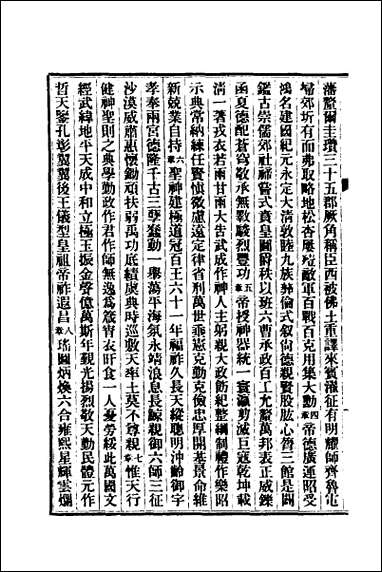 藩釐爾圭瓚三十五郡厥角稱臣西被佛土重譯來賓濰征有明耀師齊魯電
埽郊圻有而弗取略地松杏屢殪敵軍百戰百克用集大勳四章帝德廣運昭受
鴻名建國紀元永定大清敦陸九族彝倫式叙尚德親賢股肱心膂三館是闢
鑑古崇儒郊社禘嘗式賁皇圖爵秩以班六曹承政百工允釐萬邦表正威鑠
函夏德配蒼穹敬承無斁駿烈豐功五章帝授神器統一寰瀛剪滅巨寇乾坤載
清一著戎衣若兩甘雨大告武成作神人主躬親大政飭紀整綱制禮作樂昭
示典常納練任賢慎徽慮遠定律省刑萬世垂憲克勤克儉忠厚開基景命維
新兢業自持六章聖神建極道冠百王六十一年福祚久長天縱聰明沖齡御宇
孝奉兩宮德隆千古三孽蠢動一舉蕩平海氛永靖浪息長鯨親御六師三征
沙漠威肅惠懷鋤頑扶弱禹功底績虞典時巡數天率土莫不尊親七章惟天行
健神聖則之典學勤政作君作師無逸為箴宵衣旰食一人憂勞綏此萬國文
經武緯地平天成中和立極玉振金聲億萬斯年覲光揚烈敬天勤民體元作
哲天鑒孔彰翼翼後王儀型皇祖帝祚遐昌八章瑤圖炳煥六合雍熙星輝雲爛